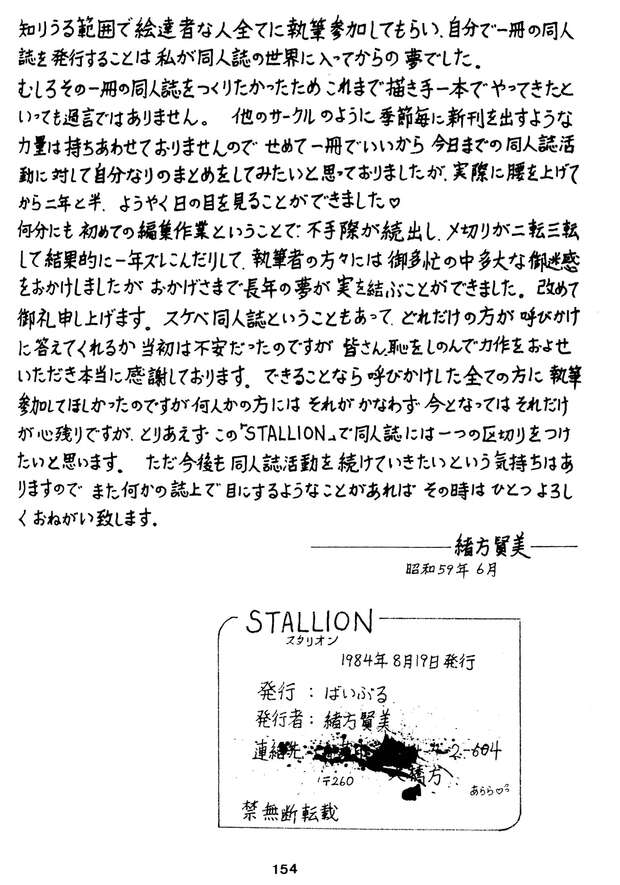 知りうる範囲で絵達者な人全てに執筆参加してもらい、自分で一冊の同人
誌を発行することは私が同人誌の世界に入ってからの夢でした。
むしろその一冊の同人誌をつくりたかったためこれまで描き手一本でやってきたと
いっても過言ではありません。 他のサークルのように季節毎に新刊を出すような
力量は持ちあわせておりませんので せめて一冊でいいから 今日までの同人誌活
動に対して自分なりのまとめをしてみたいと思っておりましたが、実際に腰を上げて
から二年と半、ようやく日の目を見ることができました♡
何分にも初めての編集作業ということで、不手際が続出し、〆切りが二転三転
して結果的に一年ズレこんだりして、執筆者の方々には御多忙の中多大な御迷惑
をおかけしましたが おかげさまで長年の夢が実を結ぶことができました。改めて
御礼申し上げます。スケベ同人誌ということもあって、どれだけの方が呼びかけ
に答えてくれるか当初は不安だったのですが 皆さん、恥をしのんで力作をおよせ
いただき本当に感謝しております。できることなら呼びかけした全ての方に執筆
参加してほしかったのですが何人かの方には それがかなわず 今となってはそれだけ
が心残りですが、とりあえず この「STALLION」で同人誌には一つの区切りをつけ
たいと思います。 ただ今後も同人誌活動を続けていきたいという気持ちはあ
りますので また何かの誌上で目にするようなことがあれば その時は ひとつよろし
くおねがい致します。
緒方賢美
昭和59年6月
STALLION
スタリオン
1984年8月19日発行
発行：ばいぶる
発行者：緒方賢美
連絡先
2-604
〒260
大橋方
あらら♡?
禁無断転載
154